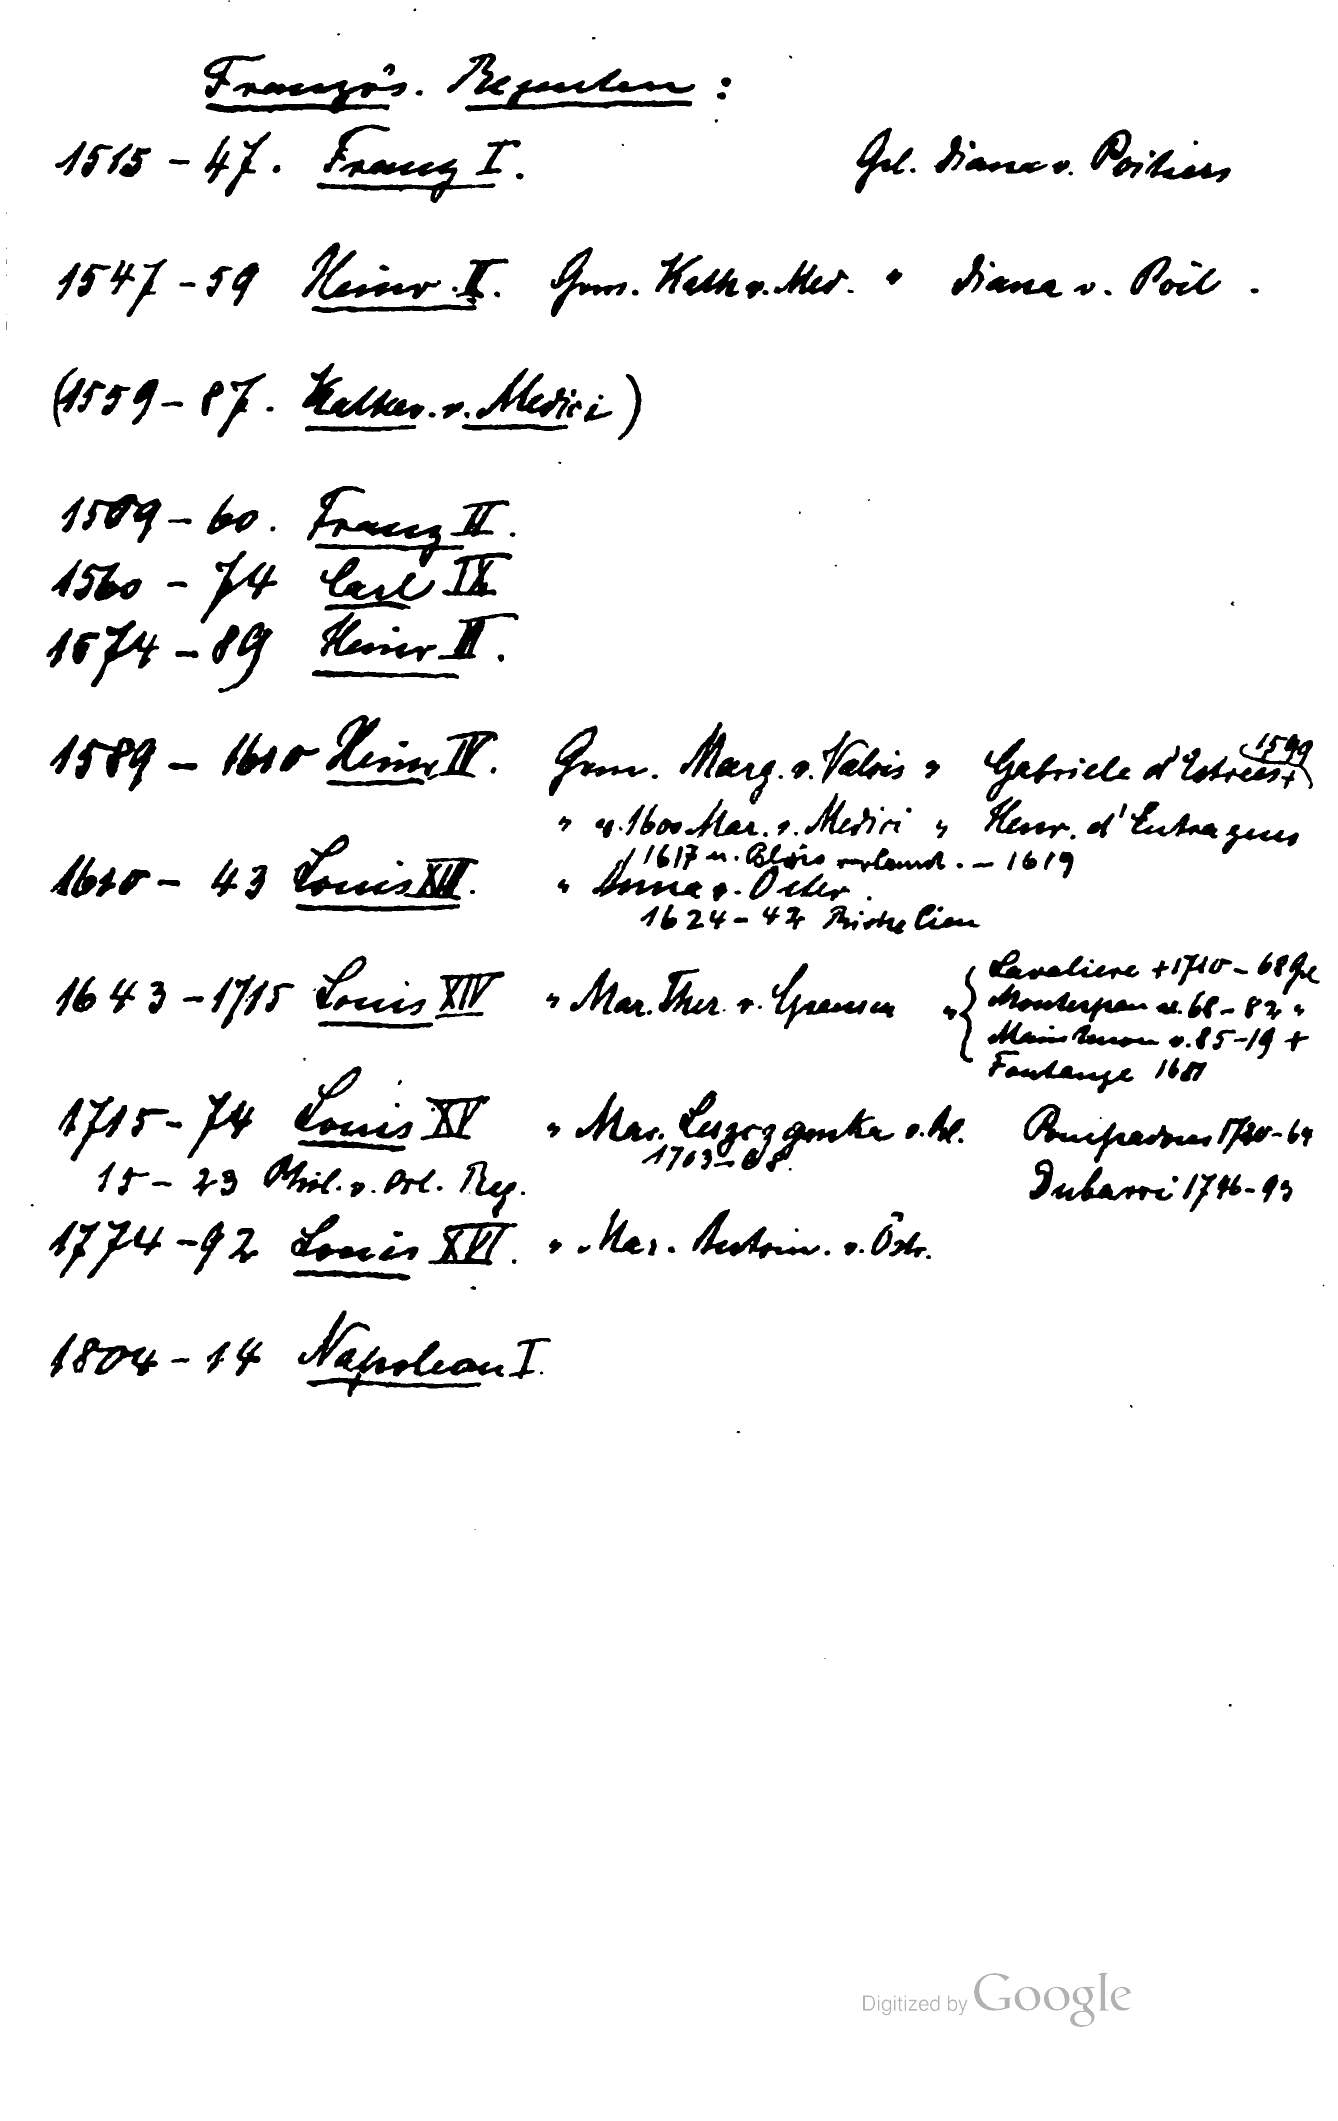 Französ. Regenten :
1515 - 47. Franz I. Gel. Diana v. Poitiers
1547 - 59 Heinr. II. Gem. Kath v. Med. " Diana v. Poit .
(1559 - 87. Kather. v. Medici)
1559 - 60. Franz II.
1560 - 74 Carl IX
1574 - 89 Heinr III.
1589 - 1610 Heinr IV. Gem. Marg. v. Valois " Gabriele d'Estrées + 1599
" 1600 Mar. v. Medici " Henr. d'Entragues
1617 n. Blois verbannt. - 1619
1610 - 43 Louis XIII. " Anna v. Oster.
1624 - 42 Richelieu
1643 - 1715 Louis XIV " Mar. Ther. v. "
Lavaliere + 1710 - 68 Gel
Montespan 68 - 82 "
Maintenon v. 85 - 19 +
Fontange 1681
1715 - 74 Louis XV " Mar. Leszczynska v. Pol. Pompadour 1720 - 64
1703 - 68.
15 - 23 Phil. v. Orl. Reg. Dubarri 1746 - 93
1774 - 92 Louis XVI. " Mar. Antoin. v. Östr.
1804 - 14 Napoleon I.
Digitized by Google